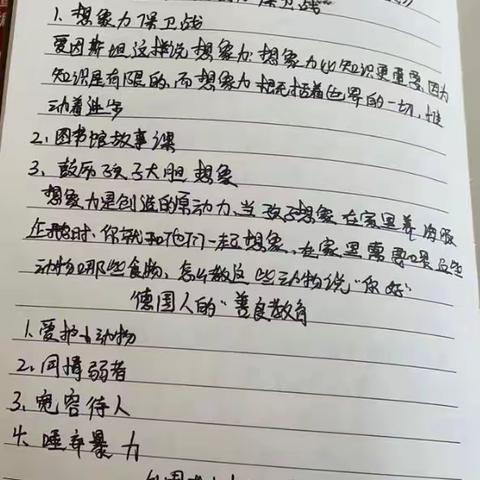 保卫战"
1、想象力保卫战
爱因斯坦这样说想象力：想象力比知识更重要，因为
知识是有限的，而想象力概括着世界的一切，推
动着进步
2、图书馆故事课
3、鼓励孩子大胆想象
想象力是创造的原动力、当孩子想象在家里养
企鹅时，你就和他们一起想象，在家里需要喂这些
动物哪些食物，怎么教这些动物说"你好"
德国人的"善良教育
1、爱护小动物
2、同情弱者
3、宽容待人
4、唾弃暴力